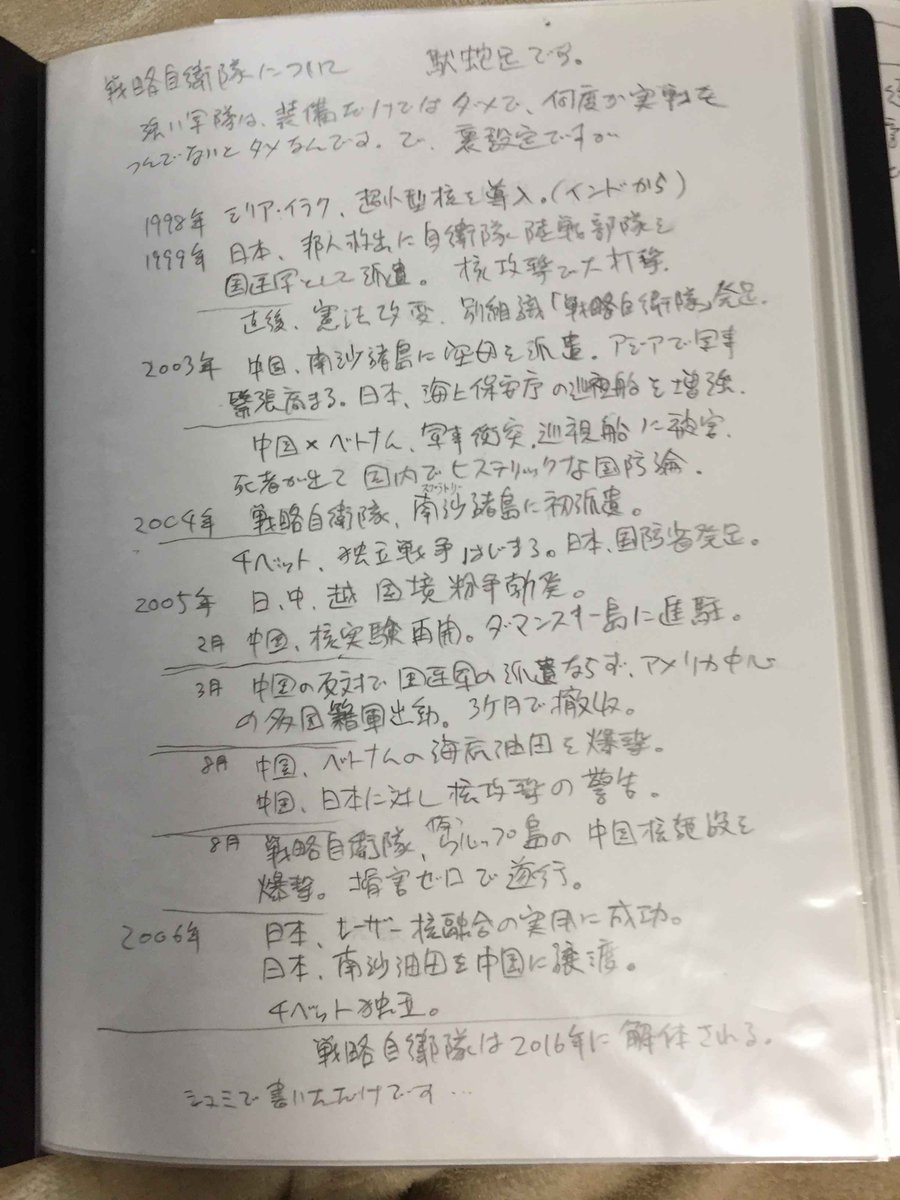 戦略自衛隊について 駄蛇足です。
強い軍隊は、装備だけではダメで、何度か実戦を
つんでないとダメなんです。で、裏設定ですが
1998年 シリア・イラク、超小型核を導入。(インドから)
1999年 日本、邦人救出に自衛隊陸戦部隊を
国連軍として派遣。核攻撃で大打撃.
直後、憲法改変、別組織「戦略自衛隊」発足.
2003年 中国、南沙諸島に空母を派遣。アジアで軍事
緊張高まる。日本、海上保安庁の巡視船を増強.
中国×ベトナム、軍事衝突.巡視船に被害.
死者が出て国内でヒステリックな国防論.
スプラトリー
2004年 戦略自衛隊、南沙諸島に初派遣。
チベット、独立戦争はじまる。日本、国防省発足。
2005年 日、中、越 国境紛争勃発。
2月 中国、核実験再開。ダマンスキー島に進駐。
3月 中国の反対で国連軍の派遣ならず、アメリカ中心
の多国籍軍出動。3ケ月で撤収。
8月 中国、ベトナムの海底油田を爆撃。
中国、日本に対し核攻撃の警告。
8月 戦略自衛隊、島の中国核施設を
爆撃。損害ゼロで遂行。
2006年 日本、レーザー核融合の実用に成功。
日本、南沙油田を中国に譲渡。
チベット独立。
戦略自衛隊は2016年に解体される。
シュミで書いただけです…